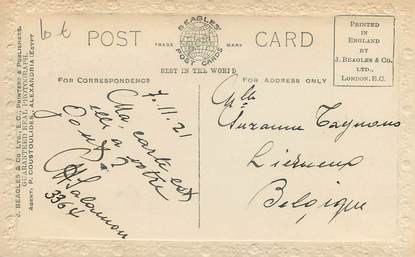 6t
POST CARD
BEAGLES'
POST CARDS
TRADE MARK
BEST IN THE WORLD
PRINTED
IN
ENGLAND
BY
J. BEAGLES & CO.
LTD.,
LONDON, E.C.
FOR CORRESPONDENCE
FOR ADDRESS ONLY
J. BEAGLES & CO. LTD., E.C., PRINTERS & PUBLISHERS.
GUARANTEED REAL PHOTOGRAPH.
AGENT: P. COUSTOULIDES, ALEXANDRIA, EGYPT
7.11.21
Ma carte est
elle à votre
goût?
Salamon
3364
Mlle
Suzanne
Lierneux
Belgique